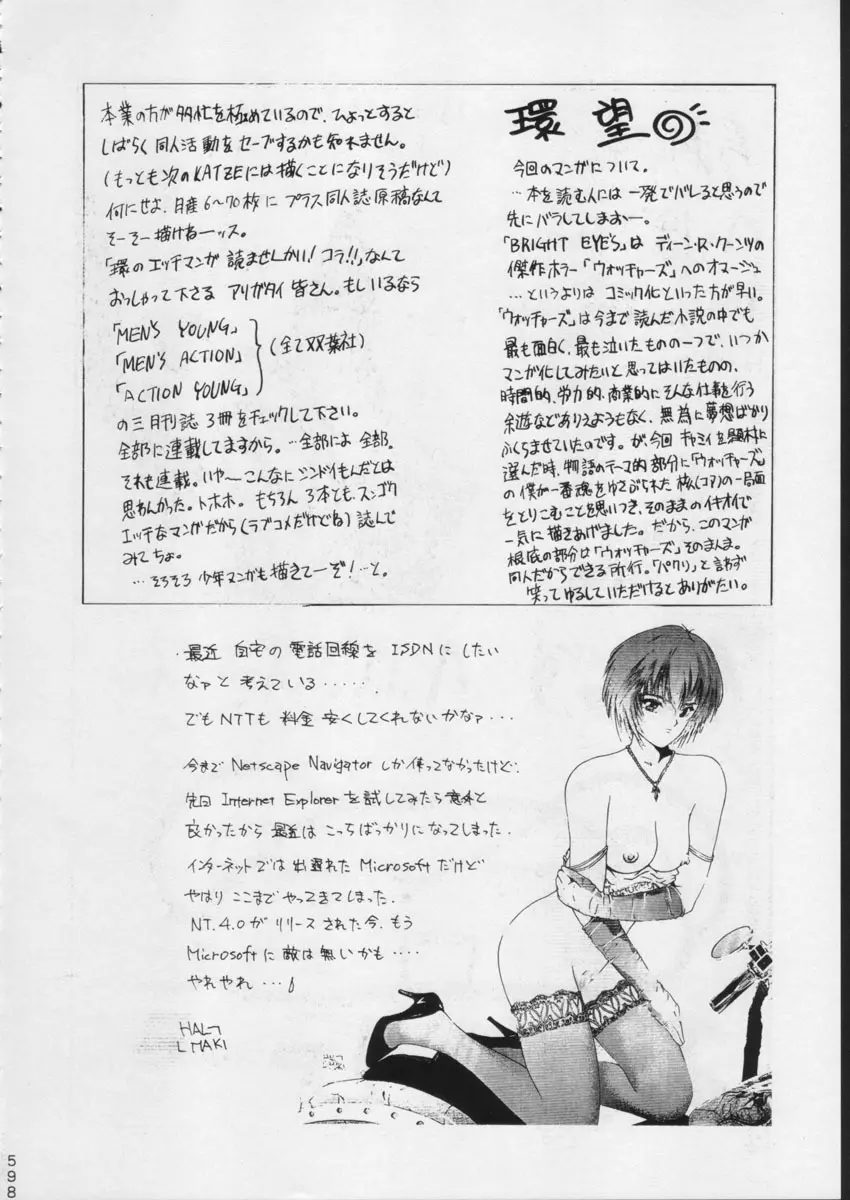 環望の
今回のマンガについて。
…本を読む人には一発でバレると思うので
先にバラしてしまおー。
「BRIGHT EYE'S」は ディーン・R・クーンツの
傑作ホラー「ウォッチャーズ」へのオマージュ
…というよりは コミック化といった方が早い。
「ウォッチャーズ」は今まで読んだ小説の中でも
最も面白く、最も泣いたものの一つで、いつか
マンガ化してみたいと思ってはいたものの、
時間的、労力的、商業的にそんな仕事を行う
余遊などありえようもなく、無為に夢想ばかり
ふくらませていたのです。が、今回 キャミイを題材に
選んだ時、物語のテーマ的部分に「ウォッチャーズ」
の僕が一番魂をゆさぶられた核(コア)の一局面
をとりこむことを思いつき、そのままのイキオイで
一気に描きあげました。だから、このマンガ
根底の部分は「ウォッチャーズ」そのまんま。
同人だからできる所行。「パクリ」と訪わず
笑ってゆるしていただけるとありがたい。
本業の方が多忙を極めているので、ひょっとすると
しばらく同人活動をセーブするかも知れません。
(もっとも次のKATZEには描くことになりそうだけど)
何にせよ、月産6〜70枚にプラス同人誌原稿なんて
そーそー描けねーッス。
「環のエッチマンガが読ませんかい!コラ!!」なんて
おっしゃって下さる アリガタイ皆さん。もしいるなら
「MEN'S YOUNG」
「MEN'S ACTION」 (全て双葉社)
「ACTION YOUNG」
の三月刊誌 3冊をチェックして下さい。
全部に連載してますから。…全部によ 全部。
それも連載。いや〜こんなにシンドイもんだとは
思わんかった。トホホ。もちろん 3本とも、スンゴク
エッチなマンガだから(ラブコメだけどね)読んで
みてちょ。
…そろそろ 少年マンガも描きてーぞ!…と。
・最近 自宅の電話回線を ISDNにしたい
なァと考えている・・・・・
でもNTTも 料金 安くしてくれないかなァ・・・
今まで Netscape Navigator しか使ってなかったけど・・
先日 Internet Explorerを試してみたら意外と
良かったから 最近は こっちばっかりになってしまった.
インターネットでは 出遅れた Microsoft だけど
やはり ここまで やってきてしまった.
NT.4.0がリリースされた今、もう
Microsoftに敵は無いかも・・・・
やれやれ・・・
HAL
MAKI
598